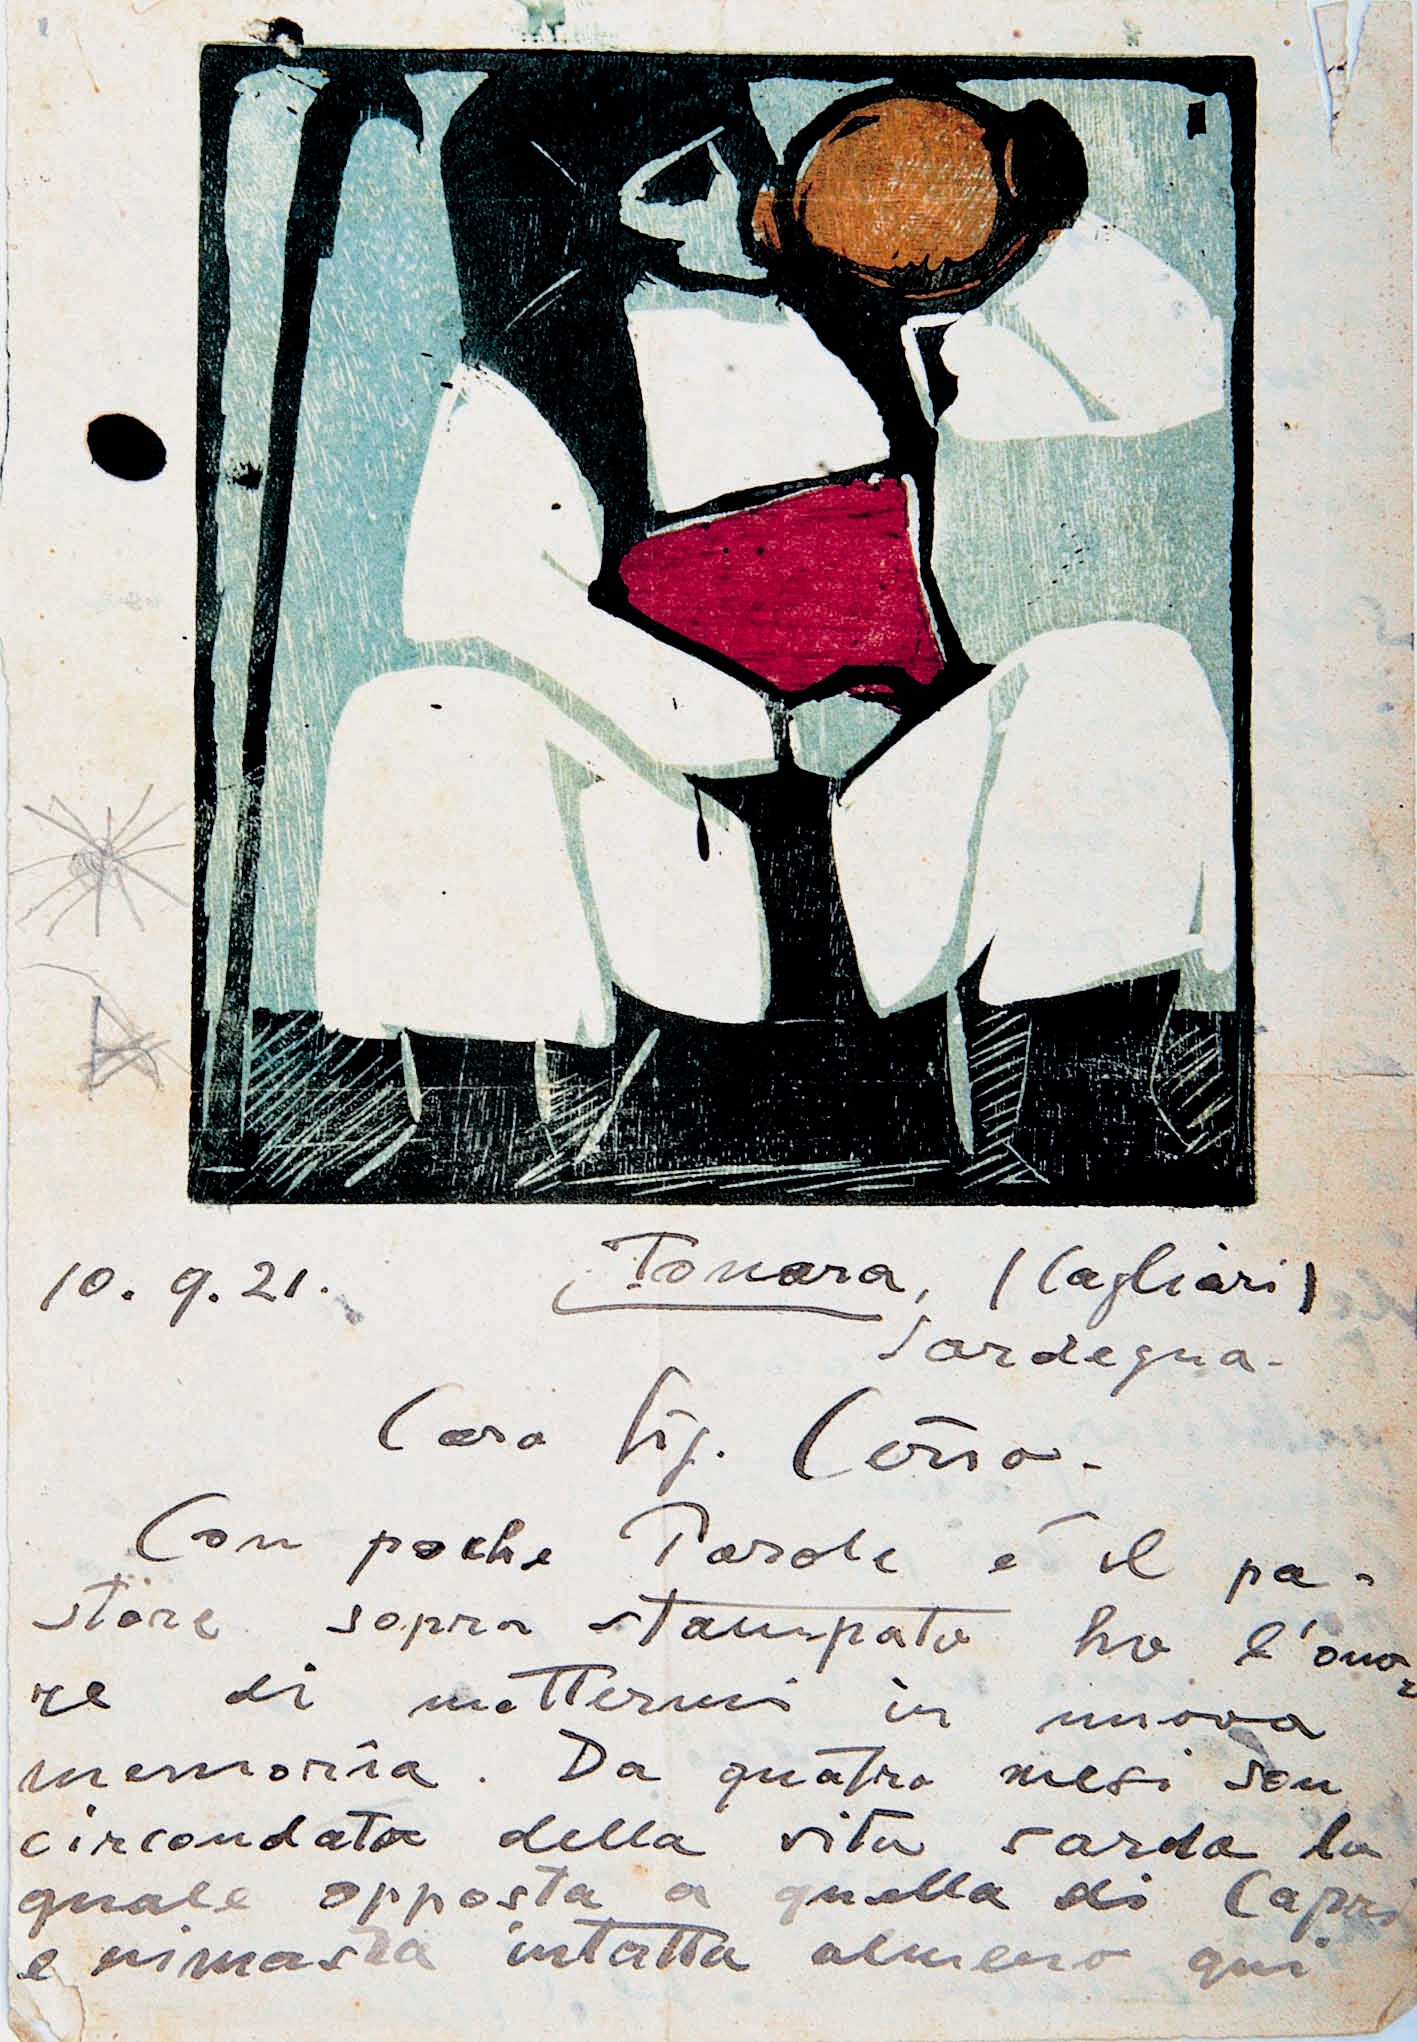 10. 9. 21. Tonara, (Cagliari)
Sardegna.
Cara Sig.
Con poche Parole e il pa-
store sopra stampato ho l'ono-
re di mettermi in nuova
memoria. Da quatro mesi son
circondata della vita sarda la
quale opposta a quella di Capri
e rimasta intatta almeno qui